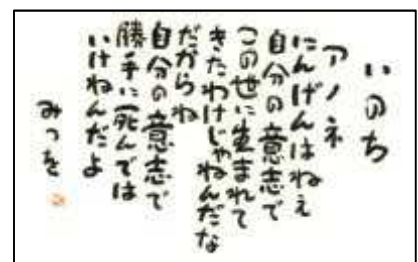 いのち
アノネ
にんげんはねえ
自分の意志で
この世に生まれて
きたわけじゃねんだな
だからね
自分の意志で
勝手に死んでは
いけねんだよ
みつを